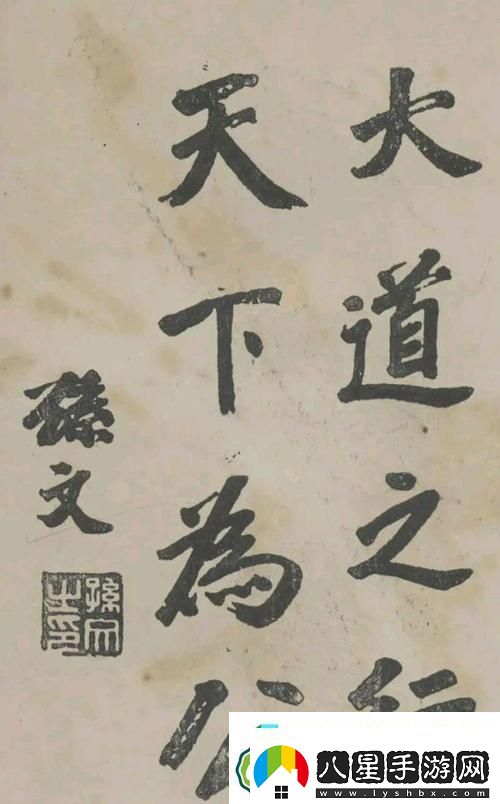 大道之行
天下為公
孫文
孫文之印
八星手游网
www.lyshbx.com